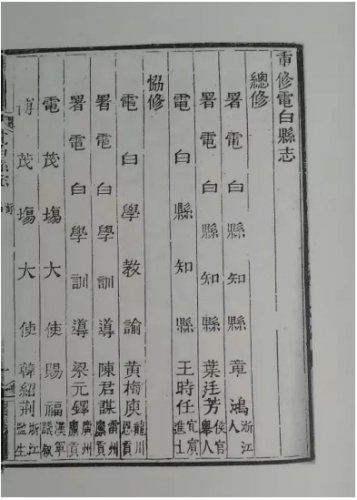 重修電白縣志
總修
署電白縣知縣章鴻浙江
署電白縣知縣葉廷芳侯官舉人
電白縣知縣王時任宜賓進士
協修
電白學教諭黃梅庾龍川恩貢
署電白學訓導陳君謀雷州廩貢
署電白學訓導梁元鐸廣州廩貢
電茂場大使賜福漢軍議敘
博茂場大使韓紹荆浙江監生